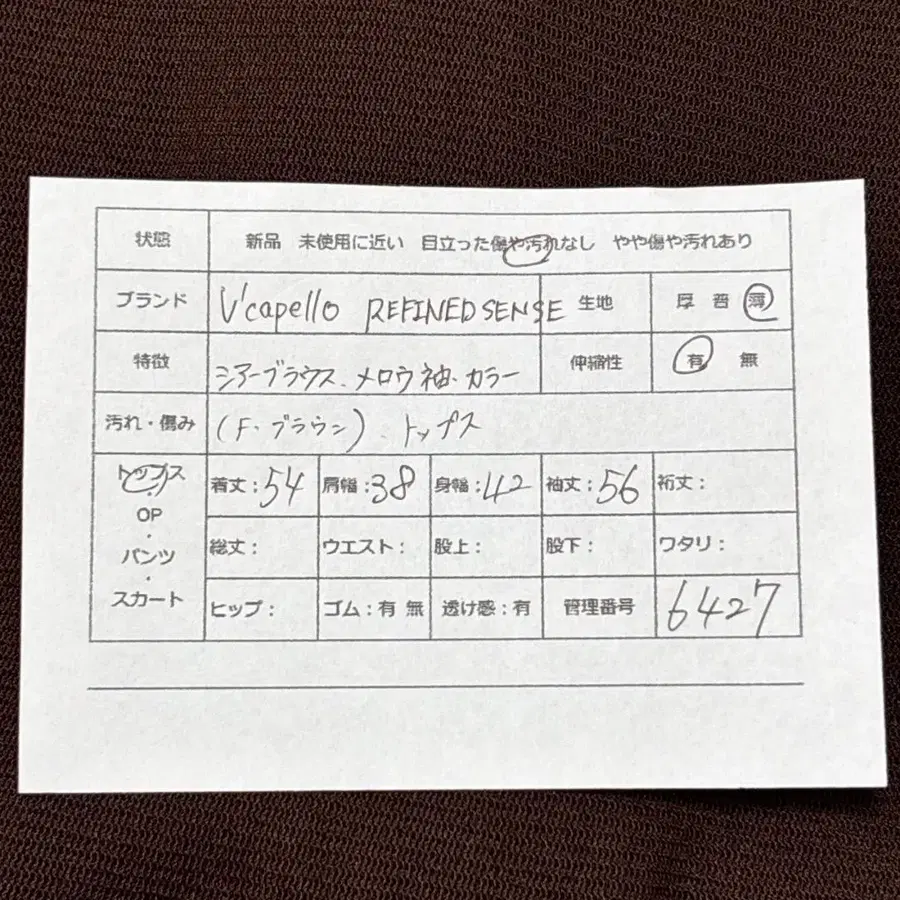 状態 新品 未使用に近い 目立った傷や汚れなし やや傷や汚れあり
ブランド V'capello REFINED SENSE 生地 厚 普 薄
特徴 シアーブラウス、メロウ袖・カラー 伸縮性 有 無
汚れ・傷み (F・ブラウン)、トップス
トップス 着丈:54 肩幅:38 身幅:42 袖丈:56 裄丈:
・
OP
・
パンツ 総丈: ウエスト: 股上: 股下: ワタリ:
・
スカート ヒップ: ゴム:有 無 透け感:有 管理番号 6427